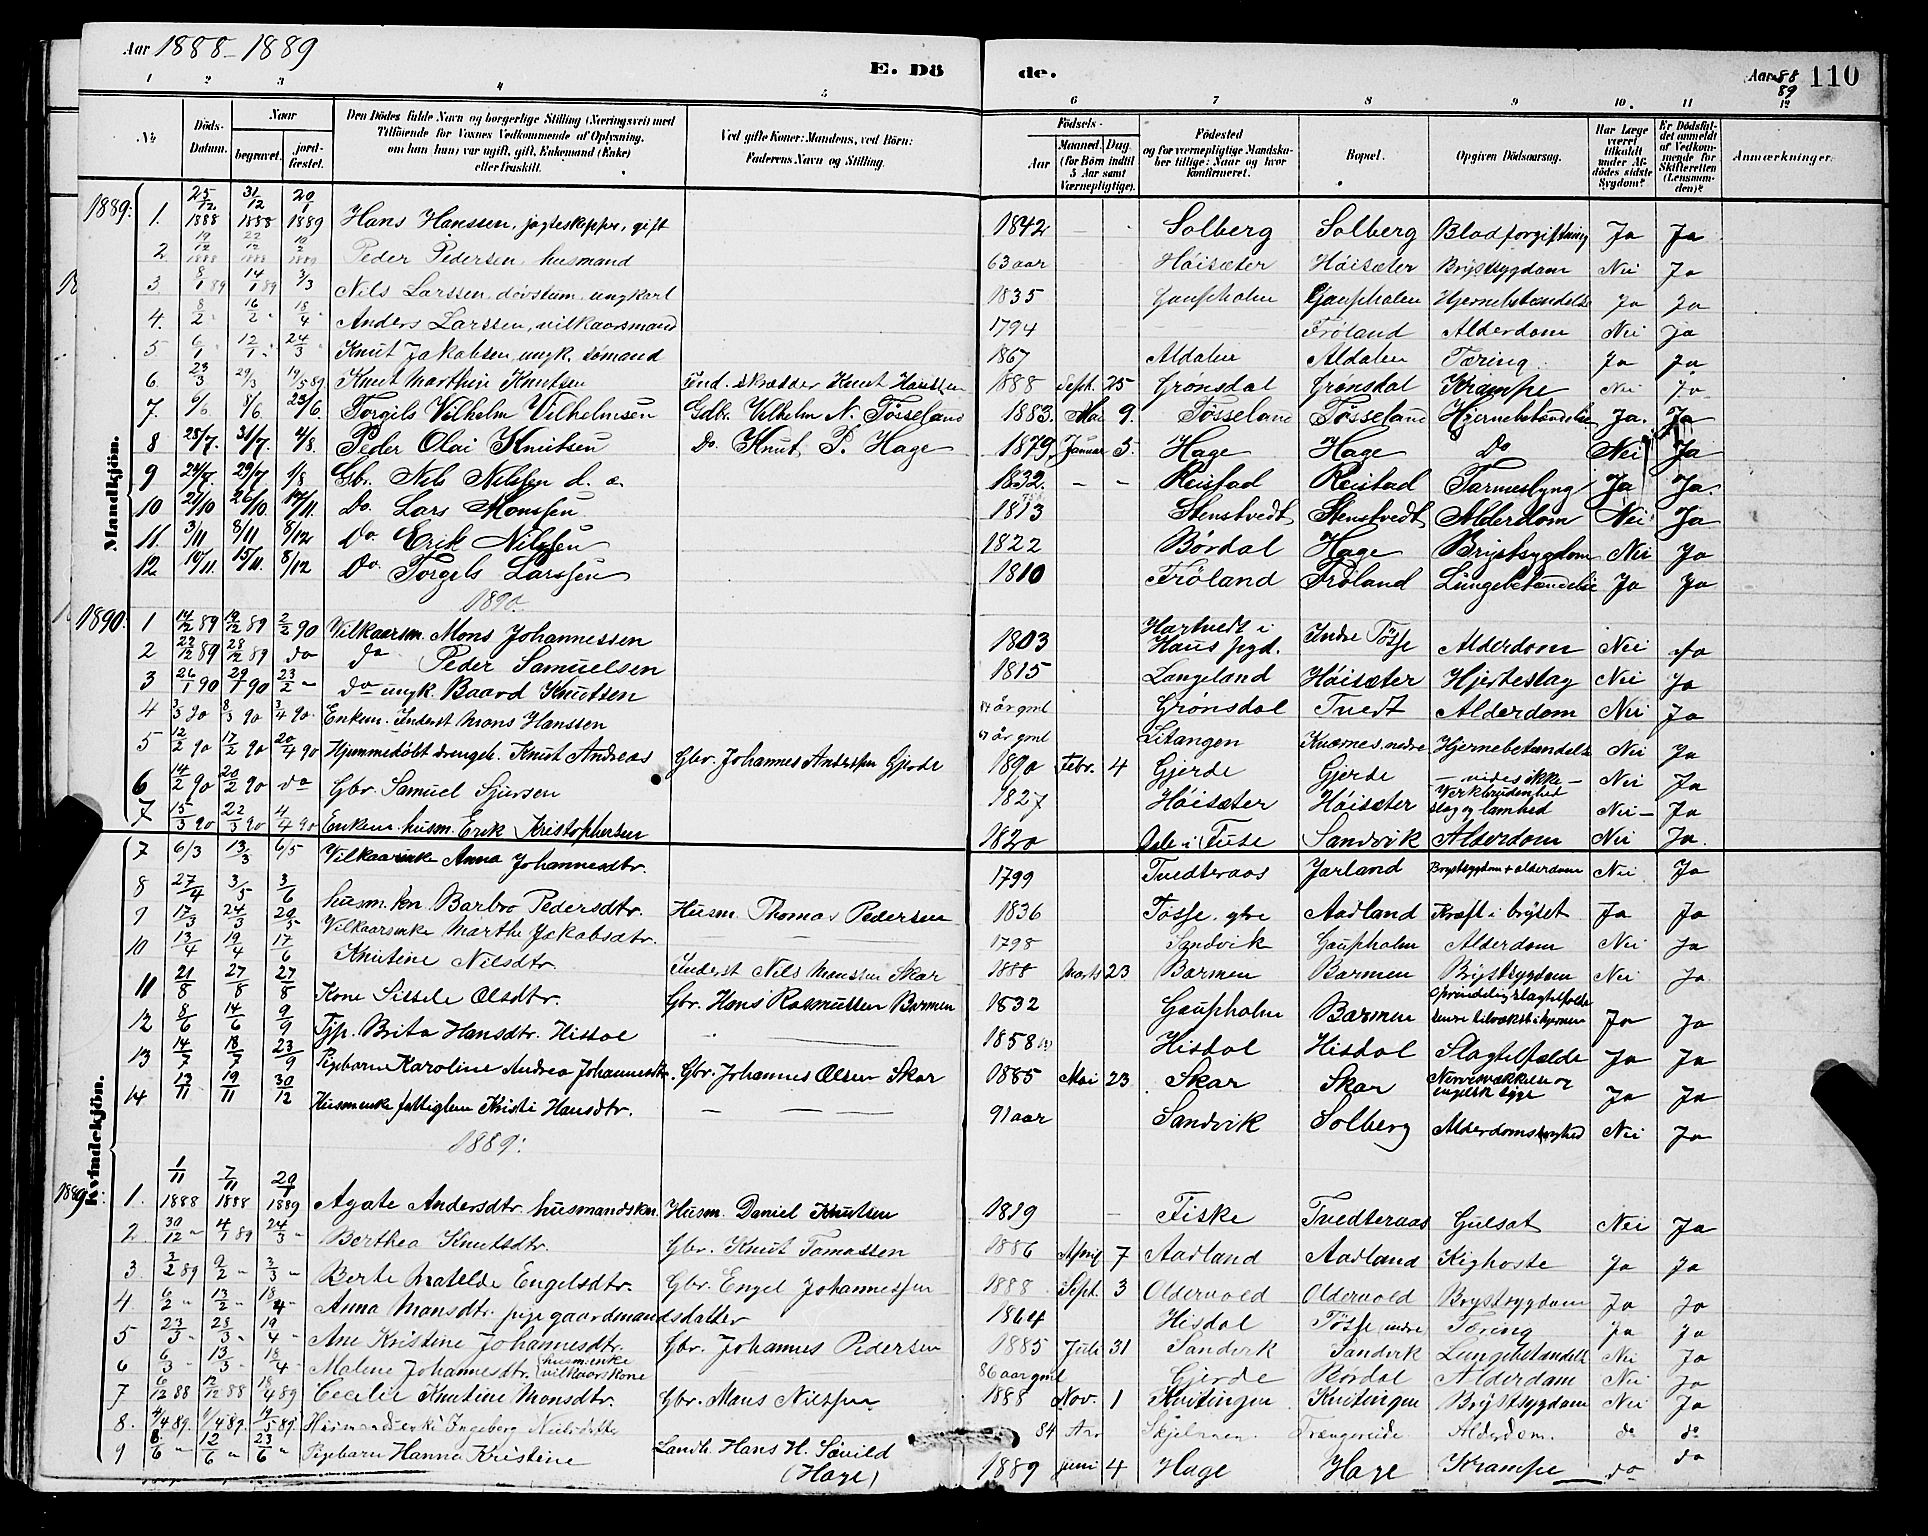 Aar 1888-1889
E. Dö
de.
Aar 88 89
110
1 2 3 4 5 6 7 8 9 10. 11 12
No
Döds-Datum.
Naar
begravet.
jord-fæstet.
Den Dödes fulde Navn og borgerlige Stilling (Næringsvei) med Tilföiende for Voxnes Vedkommende af Oplysning, om han (hun) var ugift, gift, Enkemand (Enke) eller fraskilt.
Ved gifte Koner: Mandens, ved Börn: Faderens Navn og Stilling.
Födsels-
Aar
Maaned. Dag. (for Börn indtil 5 Aar samt Værnepligtige).
Födested og for værnepligtige Mandskaber tillige: Naar og hvor konfirmeret.
Bopæl.
Opgiven Dödsaarsag.
Har Læge været tilkaldt under Afdödes sidste Sygdom?
Er Dödsfaldet anmeldt af Vedkommende for Skifteretten (Lensmanden)?
Anmærkninger.
Mandkjön.
1889: 1. 25/12 1888 31/12 1888 20/1 1889 Hans Hanssen, jagteskipper, gift 1842 - - Solberg Solberg Blodforgiftning Ja Ja
2 19/12 1888 22/12 1888 10/2 1889 Peder Pedersen, husmand 63 aar Höisæter Höisæter Brystsygdom Nei Ja
3 8/1 89 14/1 89 3/3 Nils Larssen, dövstum, ungkarl 1835 Gaupholm Gaupholm Hjernebetændelse Ja Ja
4. 8/2 16/2 18/4 Anders Larssen, vilkaarsmand 1794 Fröland Alderdom Nei Ja
5 6/1 12/1 24/3 Knut Jakobsen, ungk. sömand 1867 Aldalen Aldalen Tæring Ja Ja
6. 23/3 29/3 14/5 89 Knut Marthin Knutsen Ind. skrædder Knut Hanssen 1888 Sept. 25 Grönsdal Grönsdal Krampe Nei Ja
7. 6/6 8/6. 23/6. Torgils Vilhelm Vilhelmsen Gdb. Vilhelm N. Tösseland 1883. Mai 9. Tösseland Tösseland Hjernebetændelse Ja. Ja
8 28/7. 31/7. 4/8. Peder Olai Knutsen Do. Knut P. Hage 1879, Januar 5. Hage Hage Do Nei Ja
9 24/7. 29/7 1/8 Gbr. Nils Nilssen d. æ. 1832. - - Reistad Reistad Tarmeslyng Ja Ja.
10 21/10 26/10 17/11. Do. Lars Monssen 1813 Stenstvedt Stenstvedt Alderdom Nei Ja
11. 3/11 8/11 8/12 Do Erik Nilssen 1822 Bördal Hage Brystsygdom Nei Ja
12 10/11. 15/11. 8/12 Do. Torgils Larssen 1810 Fröland Fröland Lungebetændelse Ja Ja
1890.
1890: 1 14/12 89 19/12 89 2/2 90 Vilkaarsm. Mons Johannessen 1803 Hartvedt i Haus prgd. Indre Tösse Alderdom Nei Ja
2 22/12 89 28/12 89 do do Peder Samuelsen 1815 Langeland Höisæter Hjerteslag Nei Ja
3 26/1 90 29/1 90 23/2 do ungk. Baard Knutsen 84 år gml Grönsdal Tvedt Alderdom Nei Ja
4 3/3 90 8/3 90 3/4 90. Enkem. Inderst Mons Hanssen 67 år gml Litangen Knærnes nedre Hjernebetændelse Nei Ja
5 12/2 90 17/2 90 20/4 90 Hjemmedöbt drengeb. Knut Andreas Gbr. Johannes Anderssen Gjerde 1890 Febr. 4 Gjerde Gjerde - vides ikke - Nei Ja
6 14/2 90 20/2 90 do Gbr. Samuel Sjursen 1827 Höisæter Höisæter Værkbrudenhed slag og lamhed Nei Ja
7 15/3 90 22/3 90 4/4 90 Enkem. husm. Erik Kristophersen 1820 Osle i Fuse Sandvik Alderdom Nei Ja.
Kvindekjön.
7 6/3 13/3 6/5 Vilkaarsenke Anna Johannesdtr. 1799 Tvedteraas Jarland Brystsygdom + alderdom Nei Ja
8 27/4 3/5 3/6 husm. kn. Barbro Pedersdtr. Husm. Thomas Pedersen 1836 Tösse, ytre Aadland Kræft i bryset Ja Ja
9 17/3 24/3 20/5 Vilkaarsenke Marthe Jakobsdtr. 1798 Sandvik Gaupholm Alderdom Nei Ja
10 13/4 19/4 17/6 Knutine Nilsdtr. Inderst Nils Monssen Skar 1888 Marts 23 Barmen Barmen Brystsygdom Nei Ja.
11 21/8 27/8 27/8 Kone Sissele Olsdtr. Gbr. Hans Rasmussen Barmen 1832 Gaupholm Barmen Oprindelig slagtilfælde senere tilvækst i hjernen Ja Ja
12 8/6 14/6 9/9 Tjp. Brita Hansdtr. Hisdal 1858 Hisdal Hisdal Slagtilfælde Ja Ja
13 14/7 18/7 23/9 Pigebarn Karoline Andrea Johannesdtr. Gbr. Johannes Olsen Skar 1885 Mai 23 Skar Skar Nervesvækkelse og engelsk syge Ja Ja
14 13/11 19/11 30/12 Husmenke fattiglem Kristi Hansdtr. 91 aar Sandvik Solberg Alderdomssvaghed Nei Ja
1889:
1889: 1. 1/11 1888 7/11 1888 20/1 1889 Agate Andersdtr. husmandskn. Husm. Daniel Knutsen 1819 - Fiske Tvedteraas Gulsot Nei Ja
2. 30/12 4/1 89 24/3 Berthea Knutsdtr. Gbr. Knut Tomassen 1886 April 7 Aadland Aadland Kighoste Ja Ja
3. 3/2 89 9/2 3/3 Berte Matelde Engelsdtr. Gbr. Engel Johannessen 1888 Sept. 3 Oldervold Oldervold Brystsygdom Ja Ja
4 6/2 13/2 18/4 Anna Monsdtr. pige gaardmandsdatter 1864 Hisdal Tösse, indre Tæring Ja Ja
5 23/3 28/3 19/4 Ane Kristine Johannesdtr. Gbr. Johannes Pedersen 1885 Juli 31 Sandvik Sandvik Lungebetændelse Nei Ja
6 6/3 13/3 18/4 Malene Johannesdtr. husm.enke vilkaarskone 86 aar gml Gjerde Bördal Alderdom Nei Ja
7 6/12 88 12/12 88 18/4 89 Cecilie Knutine Monsdtr. Gbr. Mons Nilssen 1888 Nov. 1 Kvitingen Kvitingen Brystsygdom Nei Ja
8. 4/4 89. 9/4 89. 19/5 89. Husmandsenke Ingeborg Neilsdatter 84 Aar Skjelmen. Trengereide Alderdom. do do
9 8/6 12/6 23/6 Pigebarn Hanna Kristine Landh. Hans H. Sævild (Hage) 1889 juni 4 Hage Hage Krampe do do